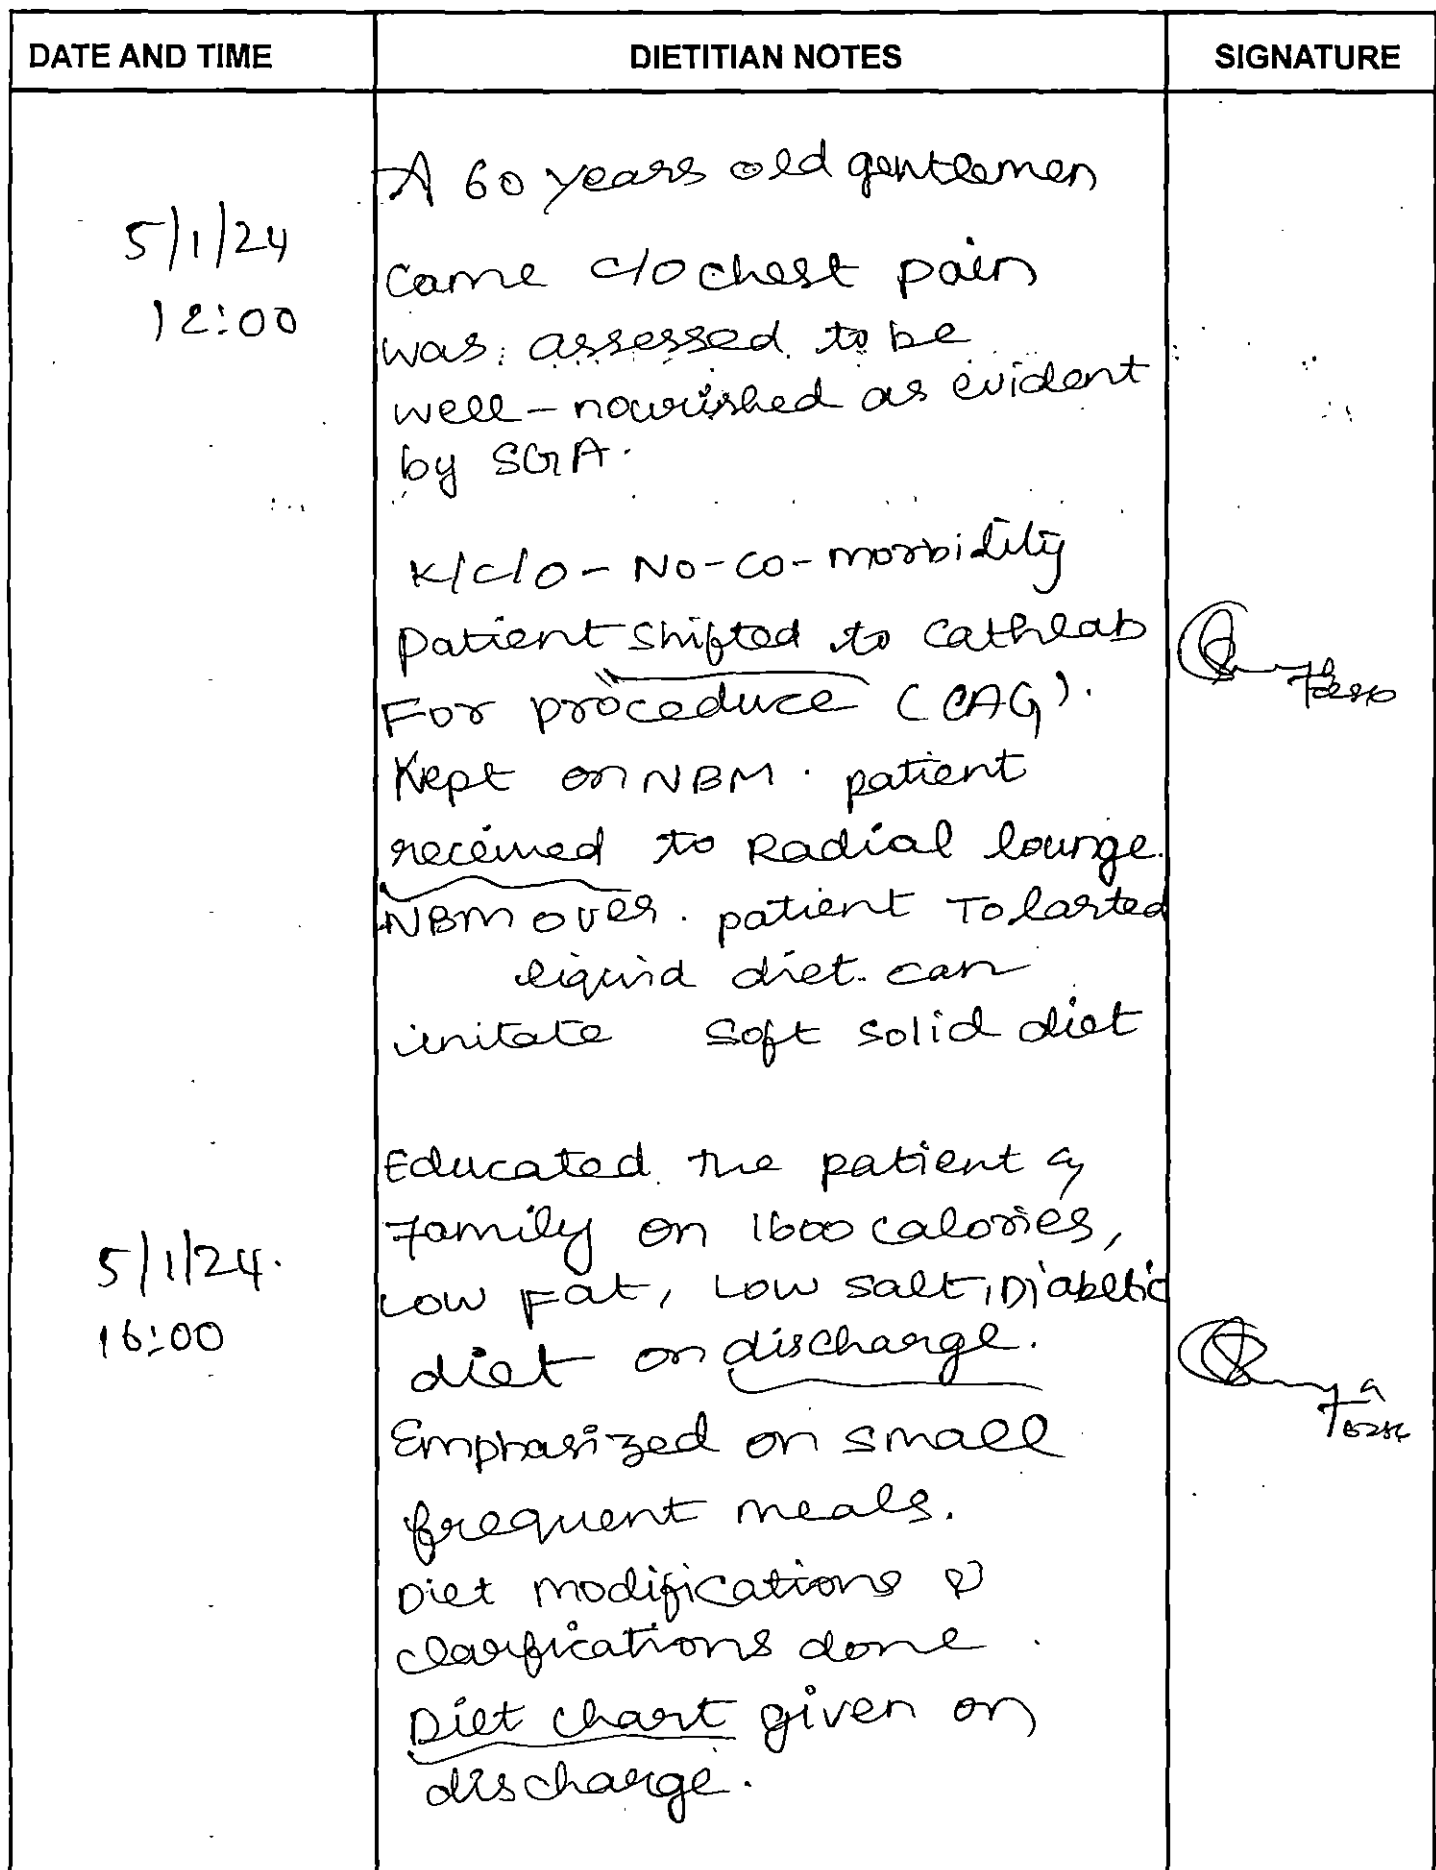 DATE AND TIME DIETITIAN NOTES SIGNATURE
A 60 years old gentlemen
5/1/24
came c/o chest pain
12:00
was assessed to be
well-nourished as evident
by SGA.
K/c/o - No-co-morbidity
Patient shifted to cathlab
For proceduce (CAG).
Kept on NBM. patient
received to Radial lounge.
NBM over. patient Tolarted
liquid diet. can
initate soft solid diet
Educated the patient &
Family on 1600 calories,
5/1/24.
Low Fat, Low salt, Diabetic
16:00
diet on discharge.
Emphasized on small
frequent meals.
Diet modifications &
clarfications done.
Diet chart given on
discharge.